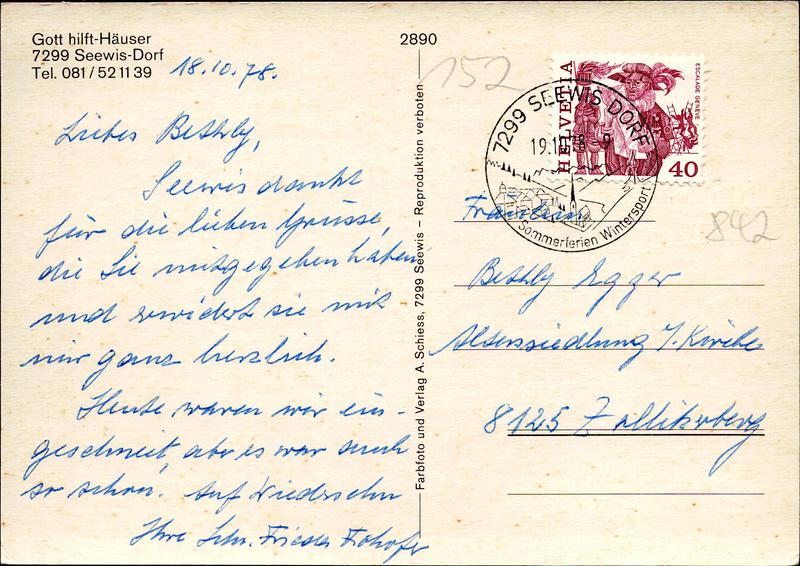 Gott hilft-Häuser
7299 Seewis-Dorf
Tel. 081/521139
18.10.78.
Liebes Bethly,
Seewis dankt
für die lieben Grüsse,
die Sie mitgegeben haben
und erwidert sie mit
mir ganz herzlich.
Heute waren wir ein-
geschneit, aber es war auch
so schön. Auf Wiedersehn
Ihre Schw. Frieda
2890
Farbfoto und Verlag A. Schiess, 7299 Seewis – Reproduktion verboten
152
7299 SEEWIS DORF
19.10.78-9
Sommerferien Wintersport
HELVETIA
ESCALADE GENÈVE
40
842
Fräulein
Bethly Egger
Alterssiedlung
8125 Zollikerberg